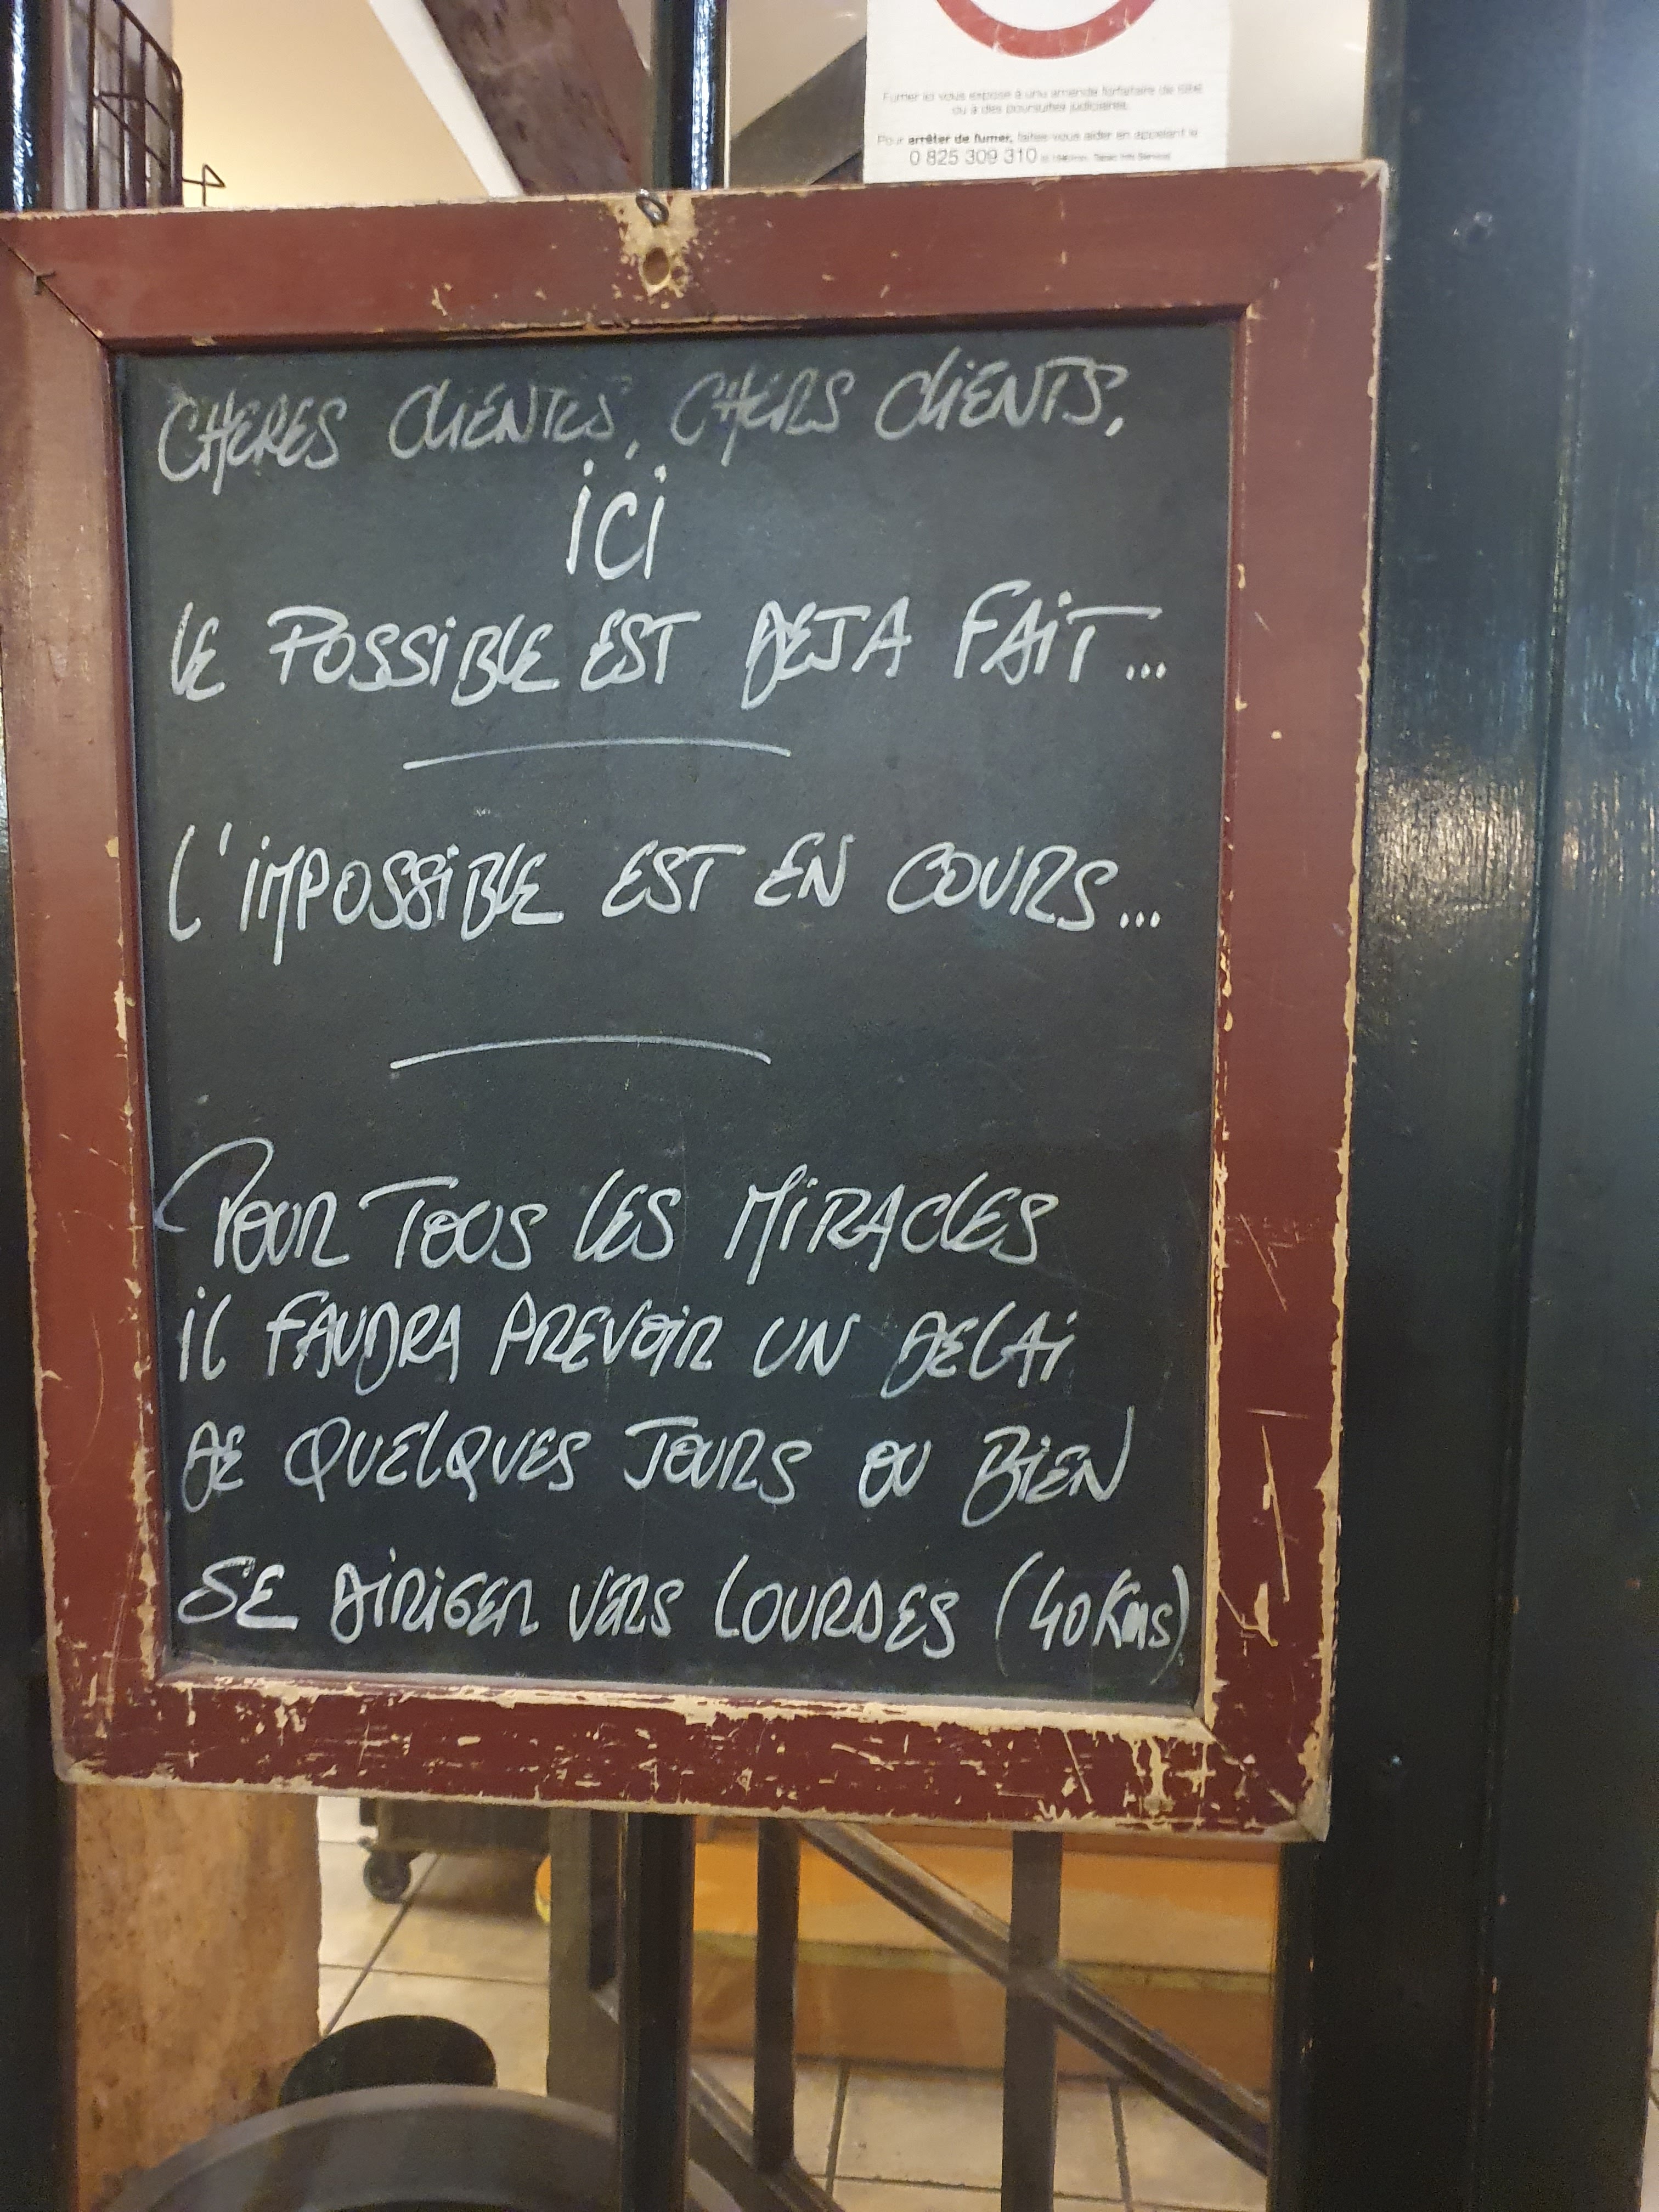 Fumer ici vous expose à une amende forfaitaire de 68€
ou à des poursuites judiciaires.
Pour arrêter de fumer, faites-vous aider en appelant le
0 825 309 310 Tabac Info Service
CHERES CLIENTES, CHERS CLIENTS,
iCi
LE POSSiBLE EST DEJA FAiT...
L'iMPOSSiBLE EST EN COURS...
POUR TOUS LES MiRACLES
iL FAUDRA PREVOiR UN DELAi
DE QUELQUES JOURS OU BiEN
SE DiRiGER VERS LOURDES (40Kms)